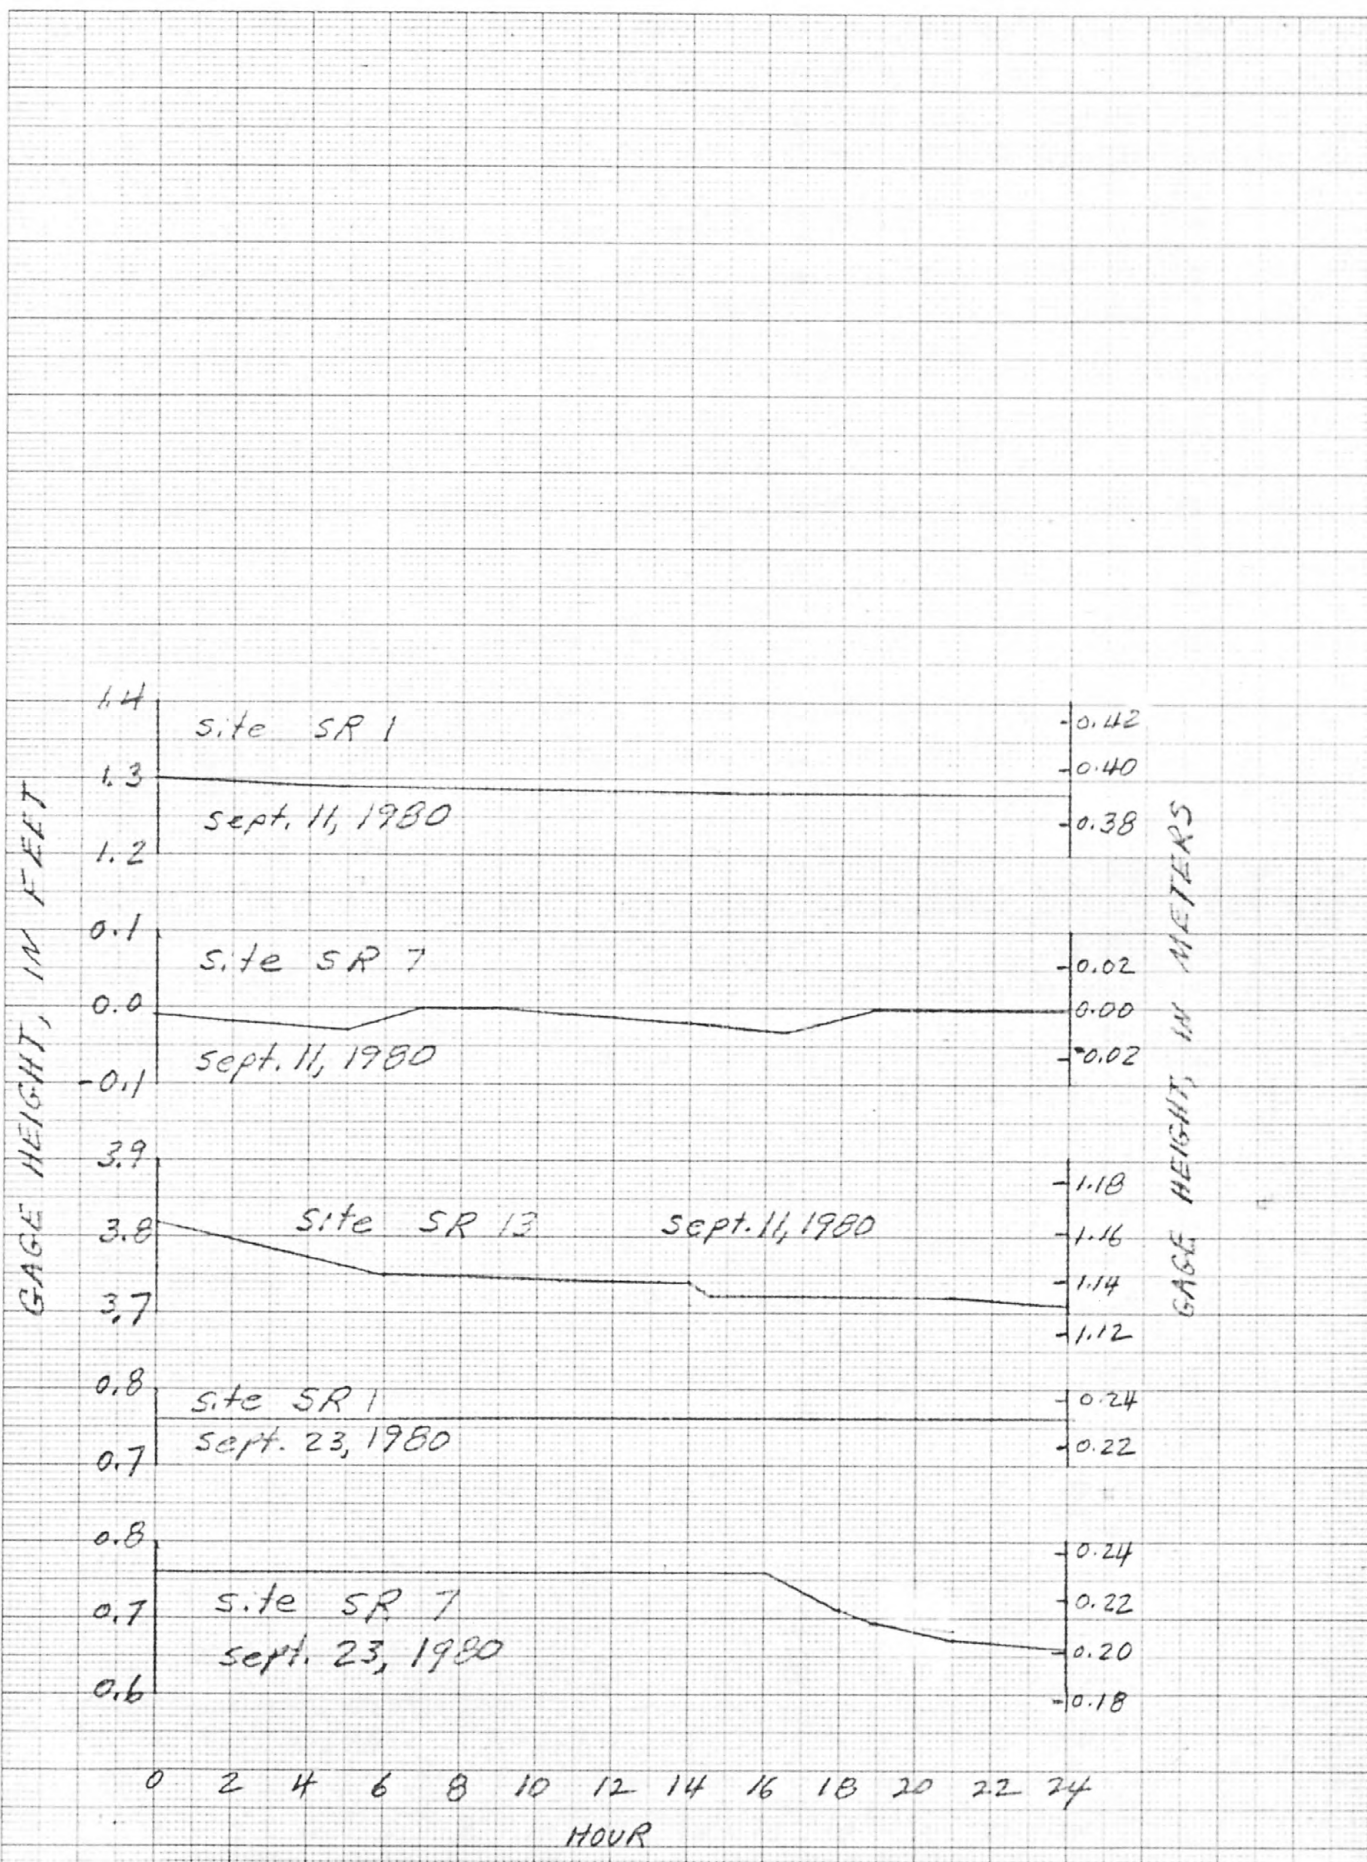 GAGE HEIGHT, IN FEET
1.4
1.3
1.2
site SR 1
sept. 11, 1980
0.42
0.40
0.38
0.1
0.0
-0.1
site SR 7
sept. 11, 1980
0.02
0.00
-0.02
3.9
3.8
3.7
site SR 13 sept. 11, 1980
1.18
1.16
1.14
1.12
0.8
0.7
site SR 1
sept. 23, 1980
0.24
0.22
0.8
0.7
0.6
site SR 7
sept. 23, 1980
0.24
0.22
0.20
0.18
GAGE HEIGHT, IN METERS
0 2 4 6 8 10 12 14 16 18 20 22 24
HOUR